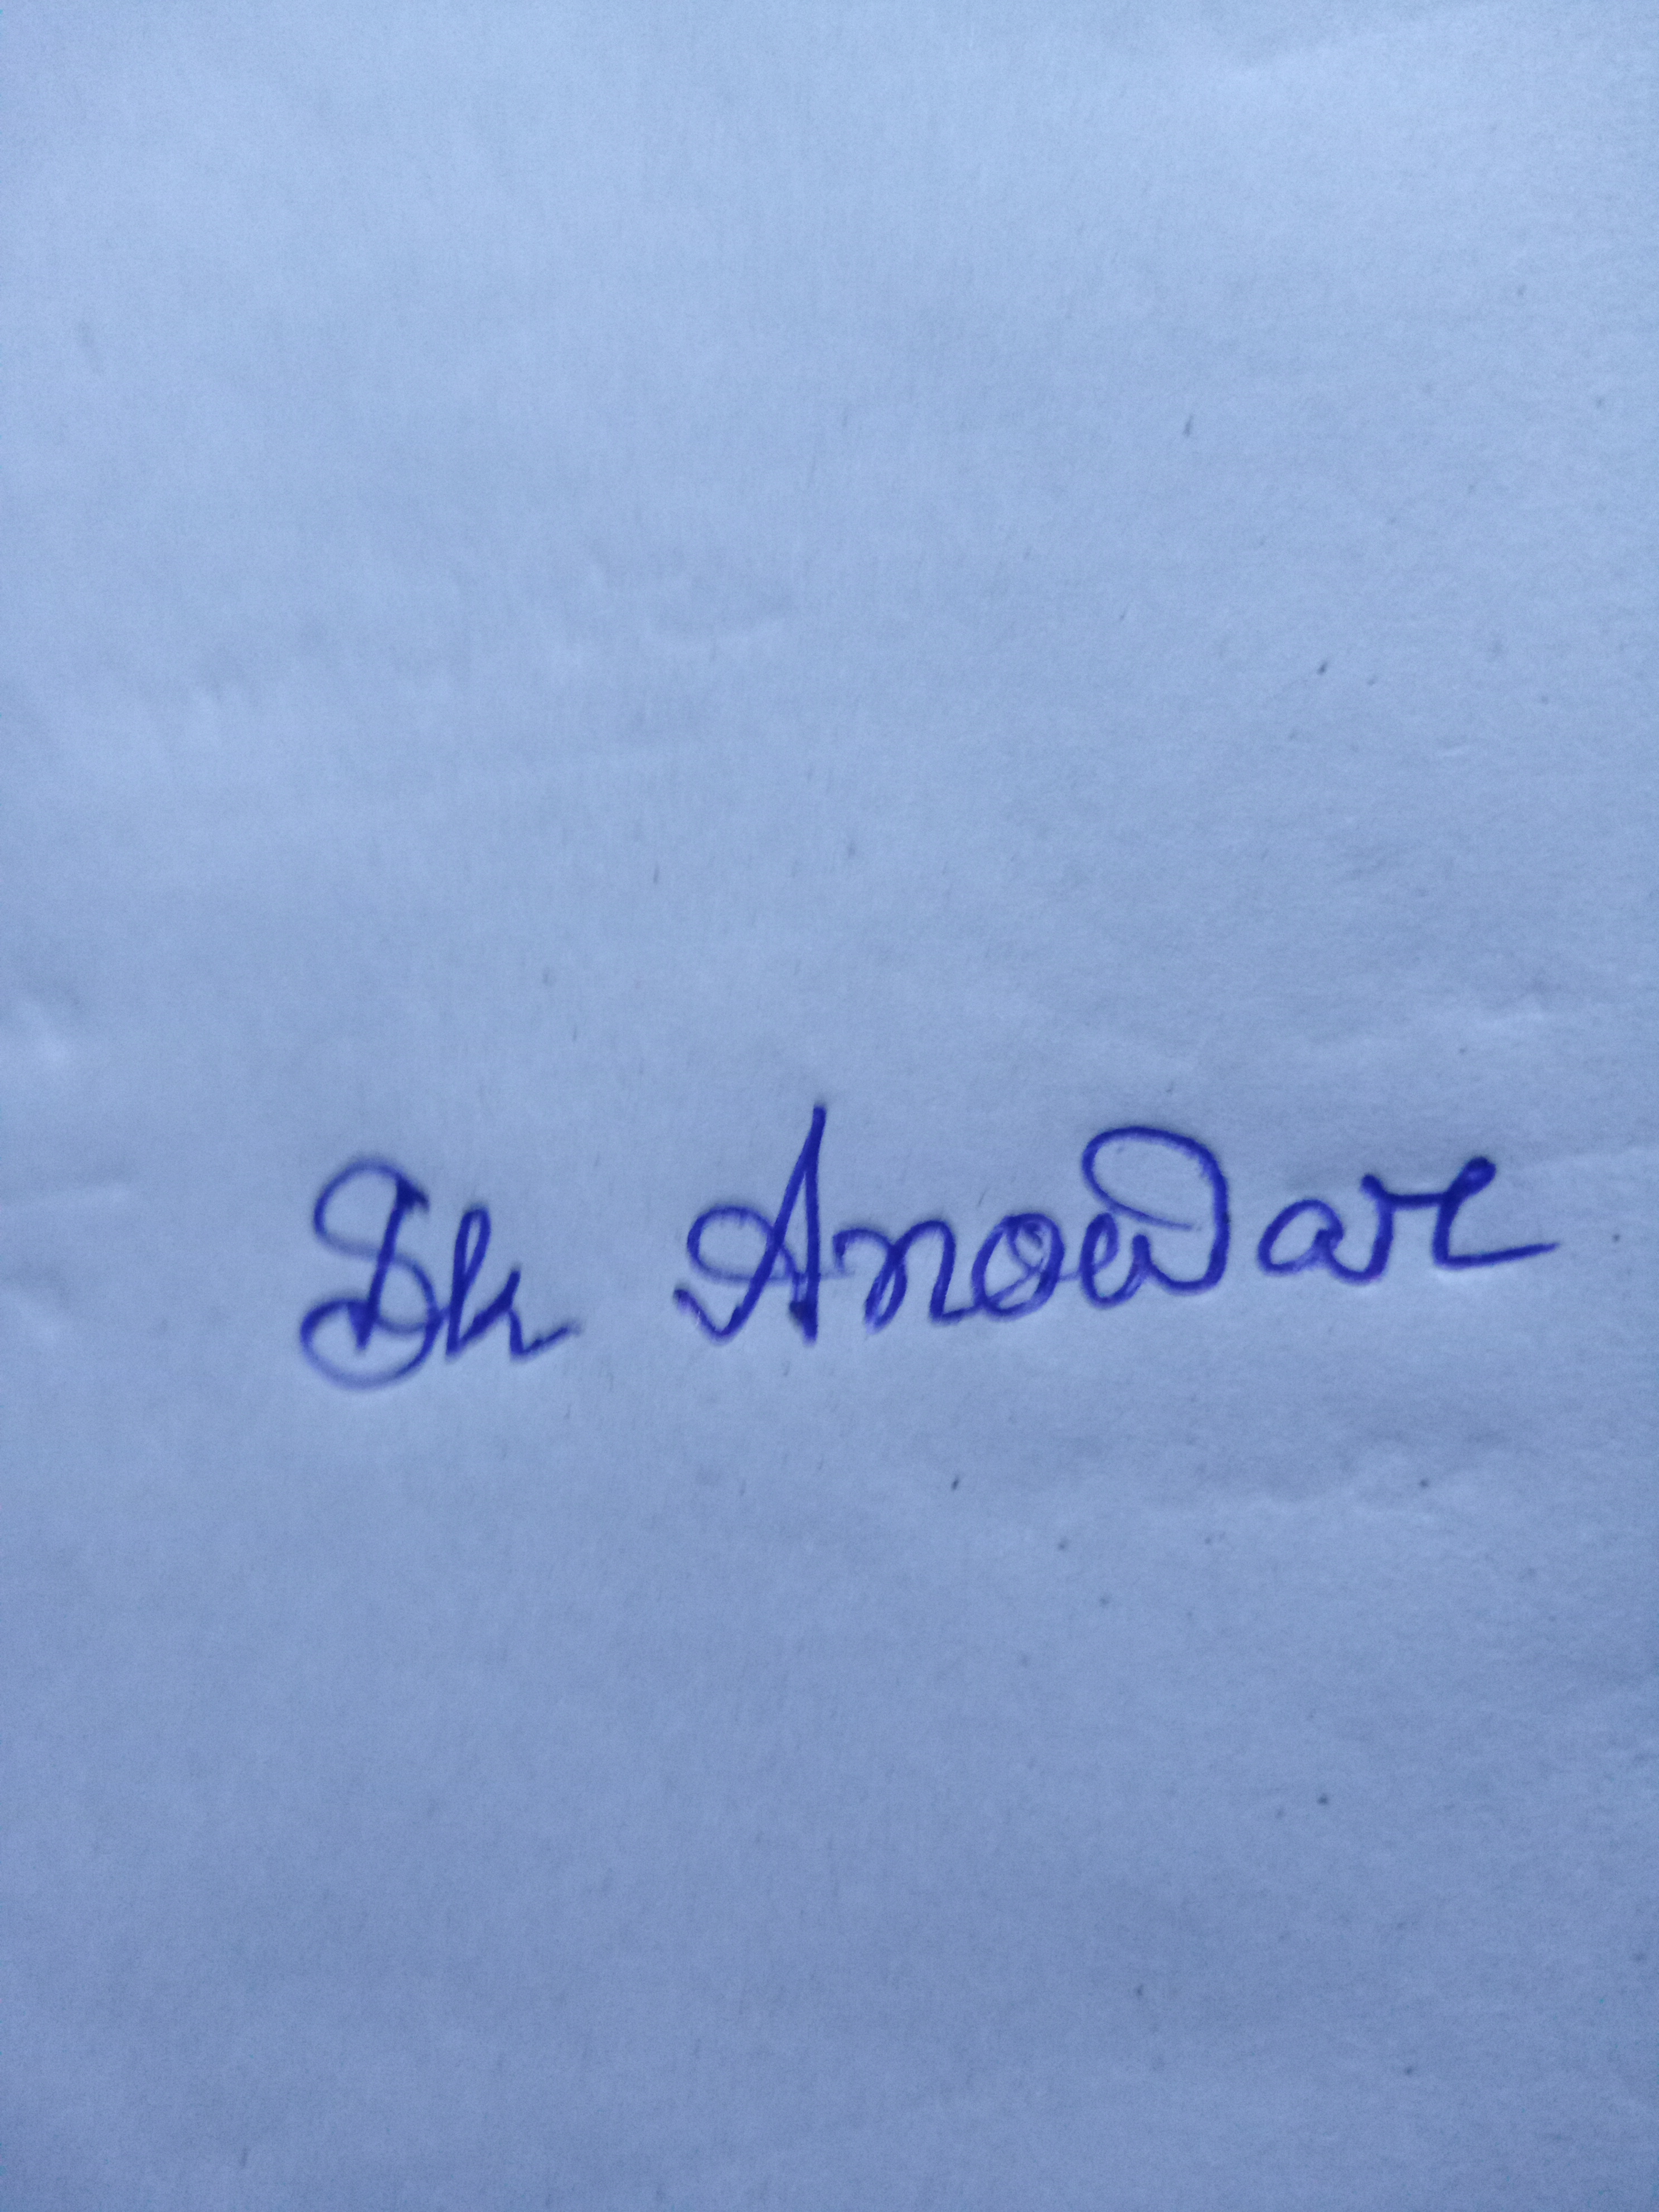 Sk Anowar